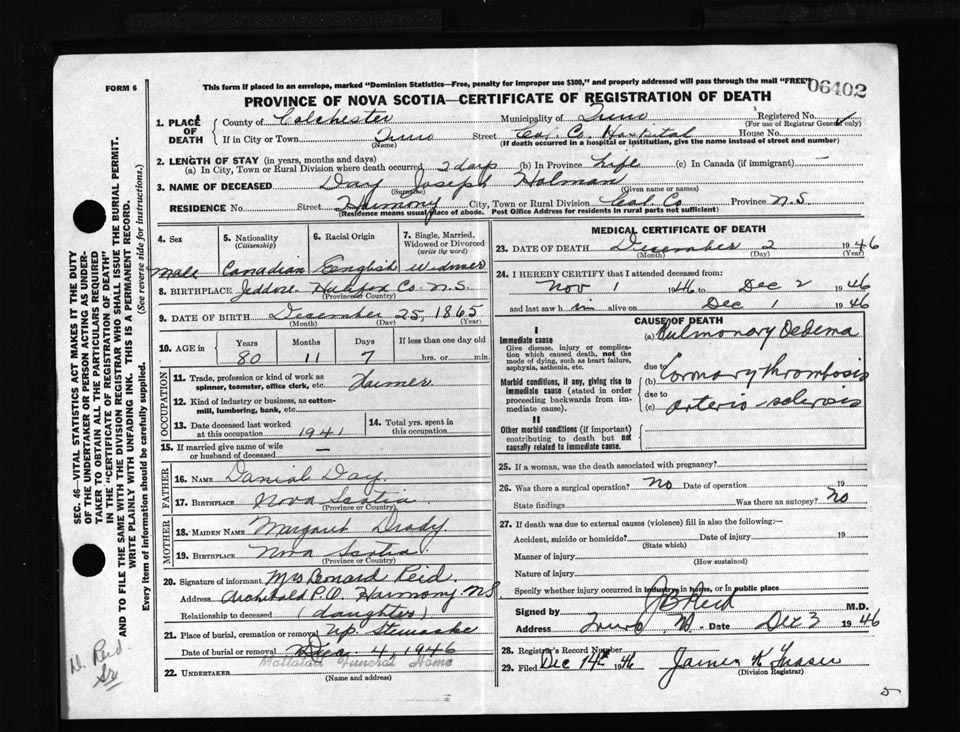 FORM 6
This form if placed in an envelope, marked "Dominion Statistics—Free, penalty for improper use $300," and properly addressed will pass through the mail "FREE"
06402
PROVINCE OF NOVA SCOTIA—CERTIFICATE OF REGISTRATION OF DEATH
1. PLACE OF DEATH
County of Colchester Municipality of Truro Registered No.
(For use of Registrar General only)
If in City or Town Truro Street Col. Co. Hospital House No.
(Name) (If death occurred in a hospital or institution, give the name instead of street and number)
2. LENGTH OF STAY (in years, months and days)
(a) In City, Town or Rural Division where death occurred 2 days (b) In Province Life (c) In Canada (if immigrant) —
3. NAME OF DECEASED Day Joseph Holman
(Surname) (Given name or names)
RESIDENCE No. Street Harmony City, Town or Rural Division Col. Co Province N.S.
(Residence means usual place of abode. Post Office Address for residents in rural parts not sufficient)
4. Sex
Male
5. Nationality
(Citizenship)
Canadian
6. Racial Origin
English
7. Single, Married, Widowed or Divorced
(write the word)
Widower
8. BIRTHPLACE Jeddore Halifax Co. N.S.
(Province or Country)
9. DATE OF BIRTH December 25, 1865
(Month) (Day) (Year)
10. AGE in Years Months Days If less than one day old
80 11 7 hrs. or min.
OCCUPATION
11. Trade, profession or kind of work as spinner, teamster, office clerk, etc. Farmer
12. Kind of industry or business, as cotton-mill, lumbering, bank, etc.
13. Date deceased last worked at this occupation 1941
14. Total yrs. spent in this occupation
15. If married give name of wife or husband of deceased —
FATHER
16. NAME Danial Day
17. BIRTHPLACE Nova Scotia
(Province or Country)
MOTHER
18. MAIDEN NAME Margaret
19. BIRTHPLACE Nova Scotia
(Province or Country)
20. Signature of informant Mrs Leonard Reid.
Address Archibald P.O. Harmony N.S.
Relationship to deceased (daughter)
21. Place of burial, cremation or removal Up. Stewiacke
Date of burial or removal Dec. 4, 1946
Mattatall Funeral Home
22. UNDERTAKER
(Name and address)
MEDICAL CERTIFICATE OF DEATH
23. DATE OF DEATH December 2 1946
(Month) (Day) (Year)
24. I HEREBY CERTIFY that I attended deceased from:
Nov 1 1946 to Dec 2 1946
and last saw him alive on Dec 1 1946
CAUSE OF DEATH
I
Immediate cause
Give disease, injury or complication which caused death, not the mode of dying, such as heart failure, asphyxia, asthenia, etc.
(a) Pulmonary Oedema
due to
Morbid conditions, if any, giving rise to immediate cause (stated in order proceeding backwards from immediate cause)
(b) Coronary thrombosis
due to
(c) arterio-sclerosis
II
Other morbid conditions (if important) contributing to death but not causally related to immediate cause.
25. If a woman, was the death associated with pregnancy?
26. Was there a surgical operation? No Date of operation 19
State findings Was there an autopsy? No
27. If death was due to external causes (violence) fill in also the following:—
Accident, suicide or homicide? Date of injury 19
(State which)
Manner of injury
(How sustained)
Nature of injury
Specify whether injury occurred in industry, in home, or in public place
Signed by J B Reid M.D.
Address Truro, NS Date Dec 3 1946
28. Registrar's Record Number
29. Filed Dec 14th 1946 James K Fraser
(Division Registrar)
SEC. 46—VITAL STATISTICS ACT MAKES IT THE DUTY
OF THE UNDERTAKER OR PERSON ACTING AS UNDER-
TAKER TO OBTAIN ALL THE PARTICULARS REQUIRED
IN THE "CERTIFICATE OF REGISTRATION OF DEATH"
AND TO FILE THE SAME WITH THE DIVISION REGISTRAR WHO SHALL ISSUE THE BURIAL PERMIT.
WRITE PLAINLY WITH UNFADING INK. THIS IS A PERMANENT RECORD.
Every item of information should be carefully supplied. (See reverse side for instructions.)
D. Reid
Sr